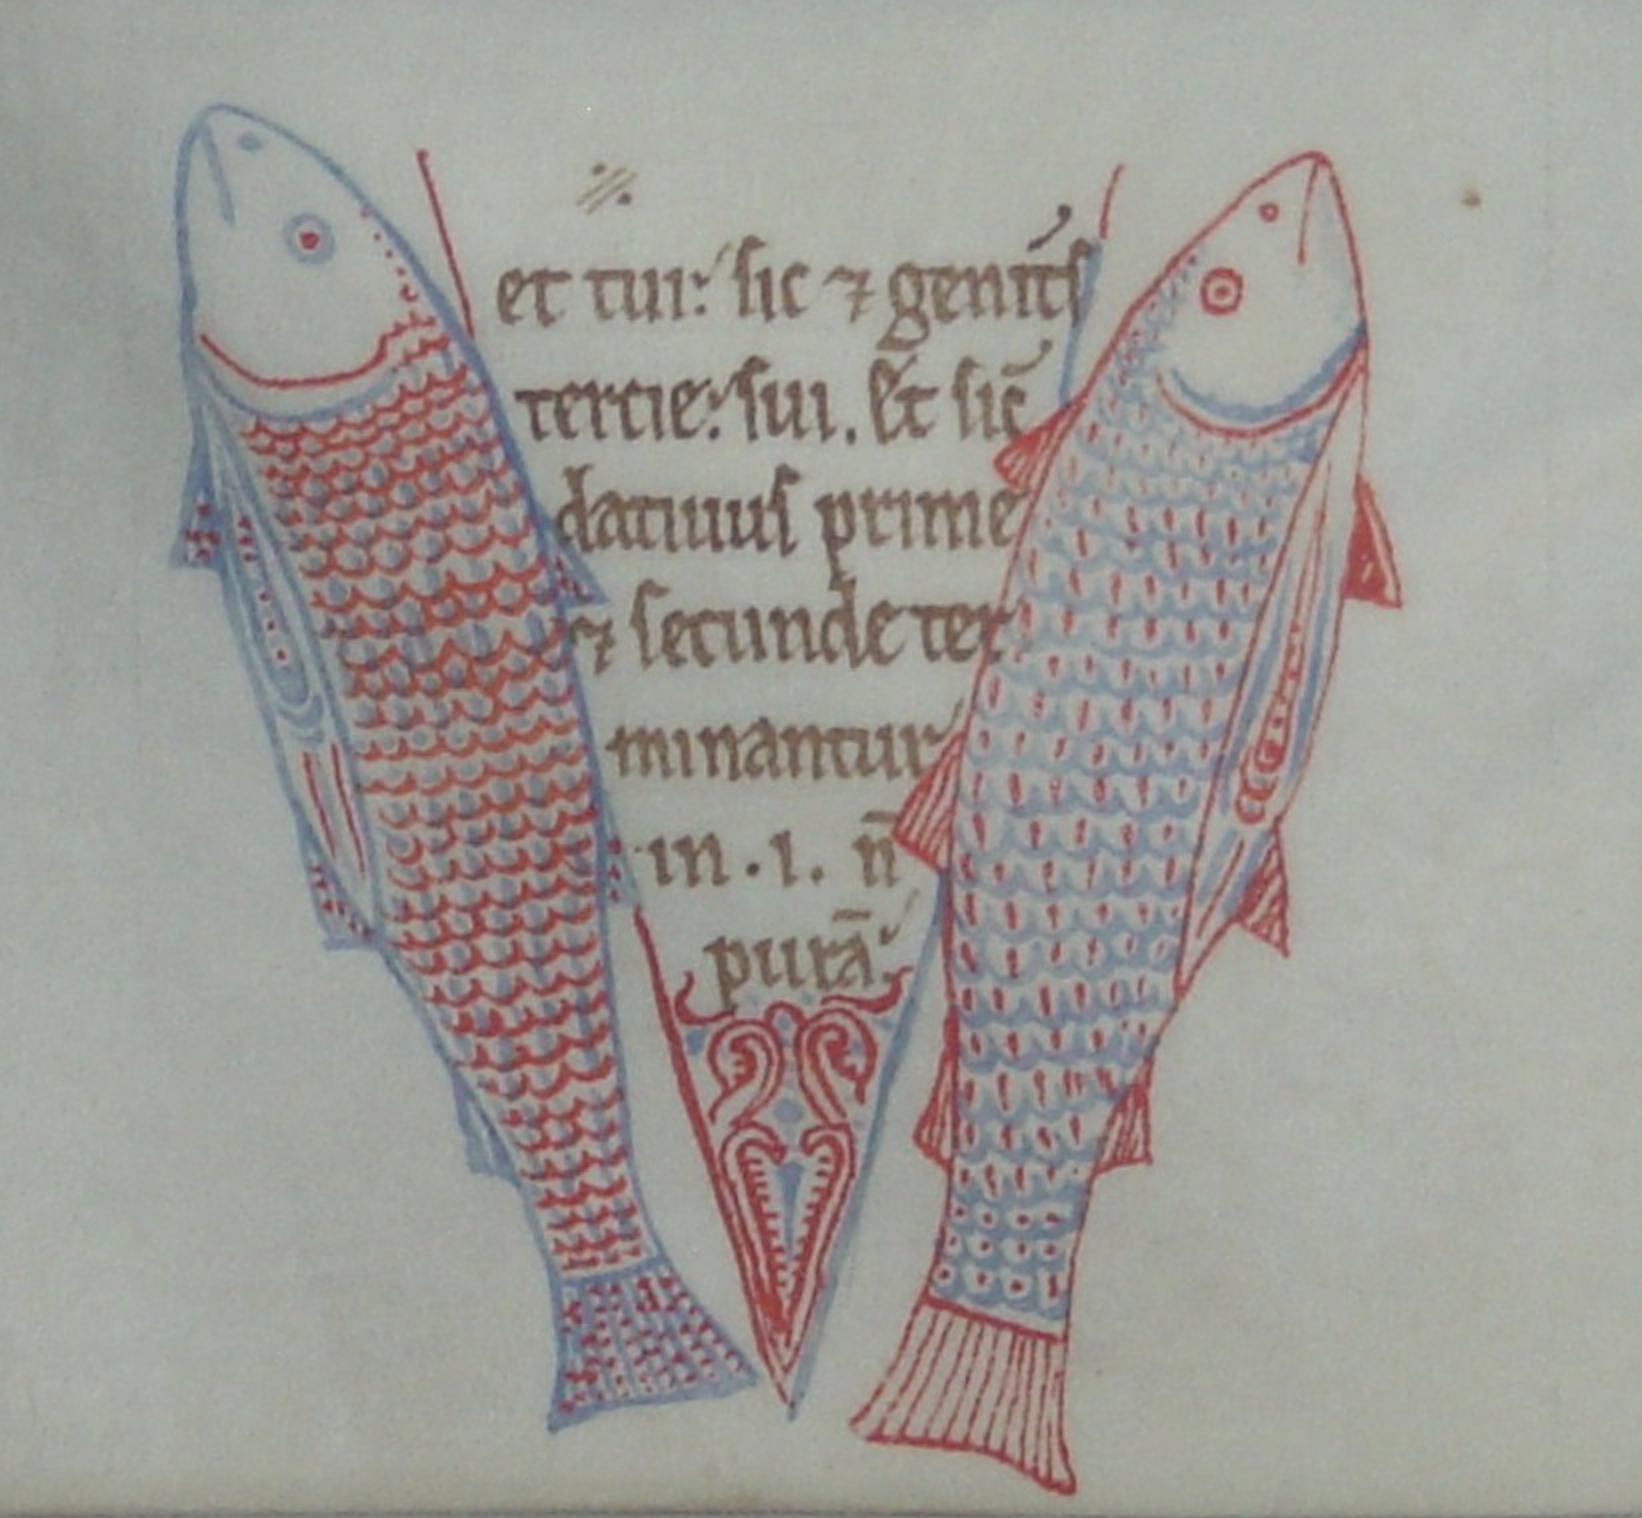 et tui: sic ⁊ genit᷒s
tercie: sui. Et sic̄
datiuus prime
⁊ secunde ter
minantur
in . i. n̄
purā